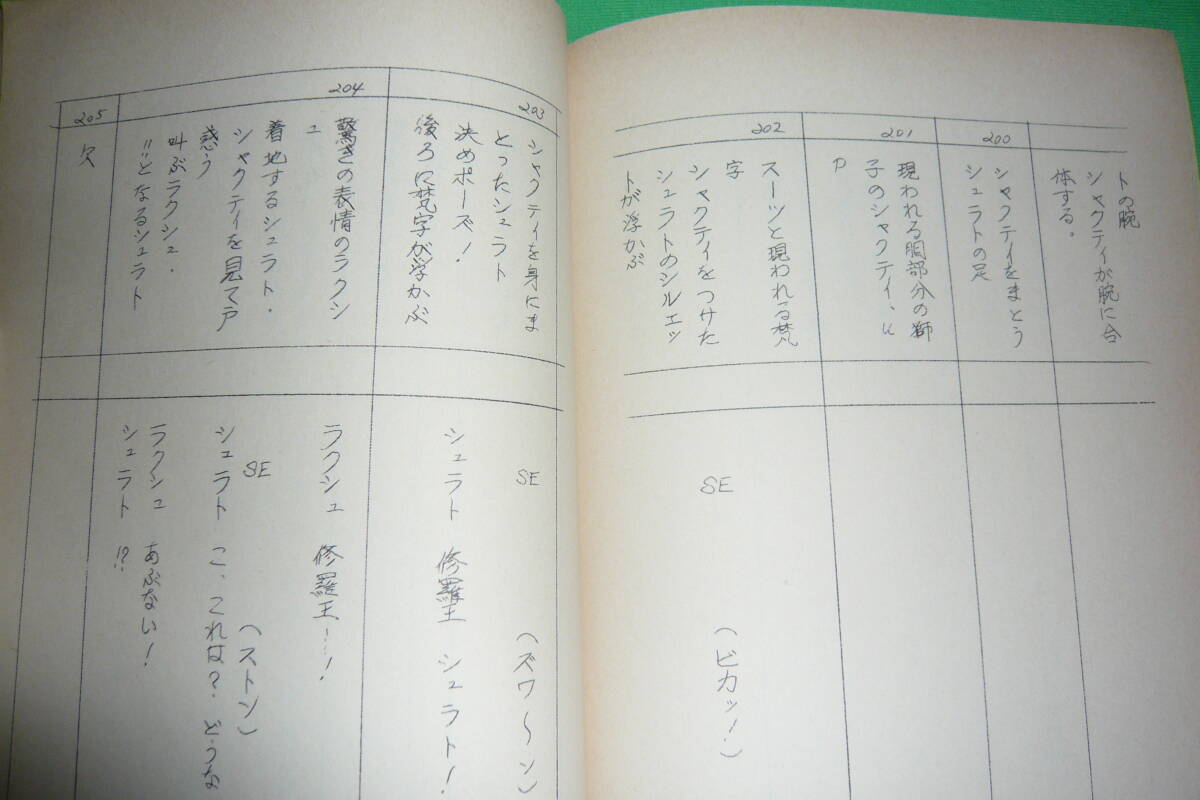 トの腕
シャクティが腕に合
体する。
200
シャクティをまとう
シュラトの足
201
現われる胸部分の獅
子のシャクティ、K
P
202
スーツと現われる梵
字
シャクティをつけた
シュラトのシルエッ
トが浮かぶ
SE
(ビカッ!)
203
シャクティを身にま
とったシュラト
決めポーズ!
後ろに梵字が浮かぶ
SE
(ズワ〜ン)
シュラト 修羅王 シュラト!
204
驚きの表情のラクシ
ュ
着地するシュラト・
シャクティを見て戸
惑う
叫ぶラクシュ・
!!となるシュラト
ラクシュ 修羅王…!
SE
(ストン)
シュラト こ、これは? どうな
ラクシュ あぶない!
シュラト !?
205
欠